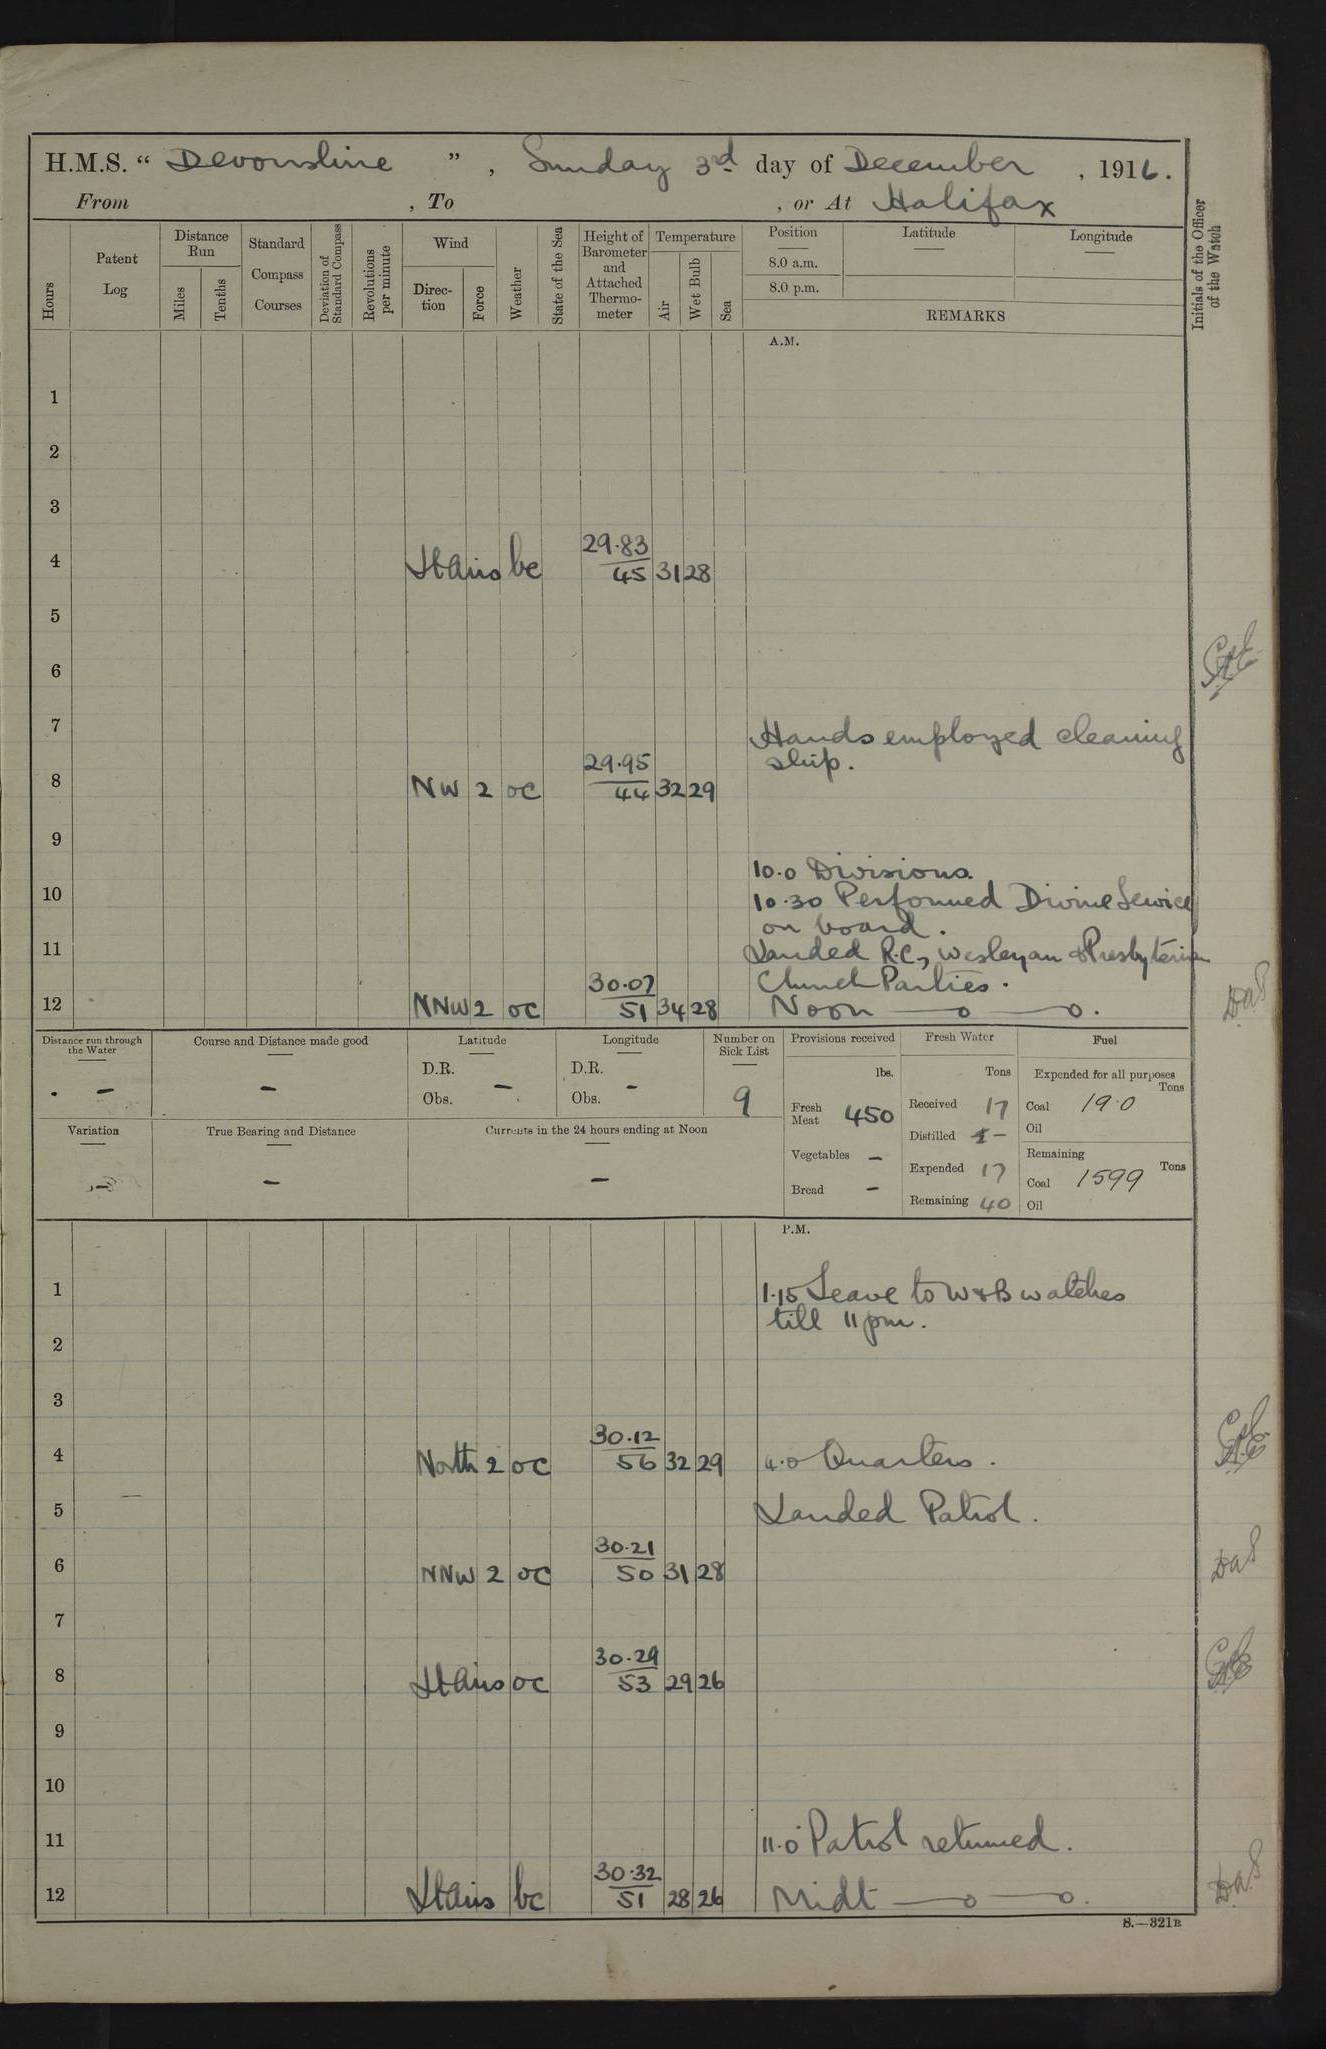 H.M.S. “ Devonshire ” , Sunday 3rd day of December , 1916.
From , To , or At Halifax
Hours
Patent Log
Distance Run
Miles
Tenths
Standard Compass Courses
Deviation of Standard Compass
Revolutions per minute
Wind
Direc-tion
Force
Weather
State of the Sea
Height of Barometer and Attached Thermo-meter
Temperature
Air
Wet Bulb
Sea
Position
8.0 a.m.
8.0 p.m.
Latitude
Longitude
REMARKS
Initials of the Officer of the Watch
A.M.
1
2
3
4 Lt Airs bc 29.83 45 31 28
5
6
7 Hands employed cleaning
ship.
8 NW 2 oc 29.95 44 32 29
9
10.0 Divisions.
10 10.30 Performed Divine Service
on board.
11 Landed R.C., Wesleyan & Presbyterian
Church Parties.
12 NNW 2 oc 30.07 51 34 28 Noon —o —o. DaS
Distance run through the Water
- -
Course and Distance made good
-
Latitude
D.R. -
Obs.
Longitude
D.R. -
Obs.
Number on Sick List
9
Variation
-
True Bearing and Distance
-
Currents in the 24 hours ending at Noon
-
Provisions received
lbs.
Fresh Meat 450
Vegetables -
Bread -
Fresh Water
Tons
Received 17
Distilled -
Expended 17
Remaining 40
Fuel
Expended for all purposes
Tons
Coal 19.0
Oil
Remaining
Tons
Coal 1599
Oil
P.M.
1 1.15 Leave to W & B watches
till 11 pm.
2
3
4 North 2 oc 30.12 56 32 29 4.0 Quarters.
5 Landed Patrol.
6 NNW 2 oc 30.21 50 31 28 DaS
7
8 Lt Airs oc 30.29 53 29 26
9
10
11 11.0 Patrol returned.
12 Lt Airs bc 30.32 51 28 26 Midt —o —o. DaS
S.—321B